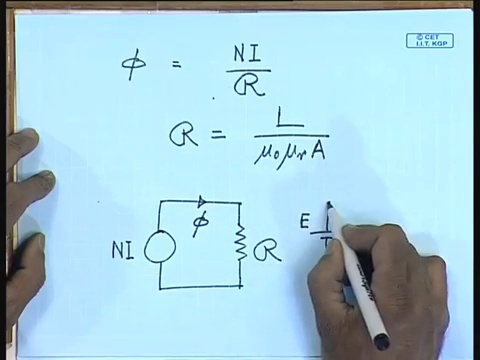 © CET
I.I.T. KGP
ϕ = NI / R
R = L / μ₀ μᵣ A
ϕ
NI R
E